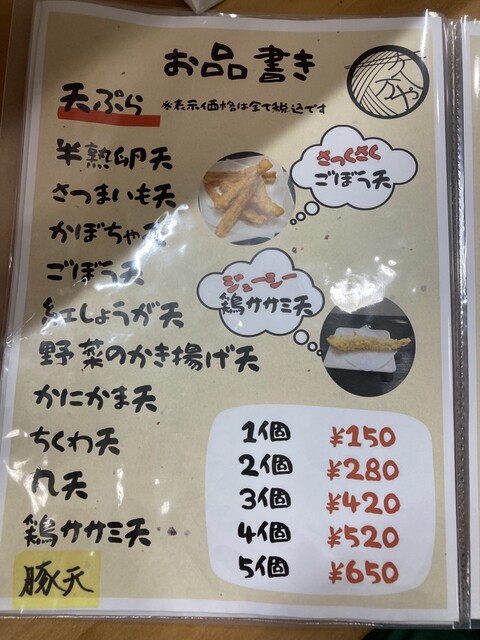 お品書き
天ぷら
※表示価格は全て税込です
半熟卵天
さつまいも天
かぼちゃ天
ごぼう天
紅しょうが天
野菜のかき揚げ天
かにかま天
ちくわ天
丸天
鶏ササミ天
豚天
さっくさく
ごぼう天
ジューシー
鶏ササミ天
1個 ¥150
2個 ¥280
3個 ¥420
4個 ¥520
5個 ¥650